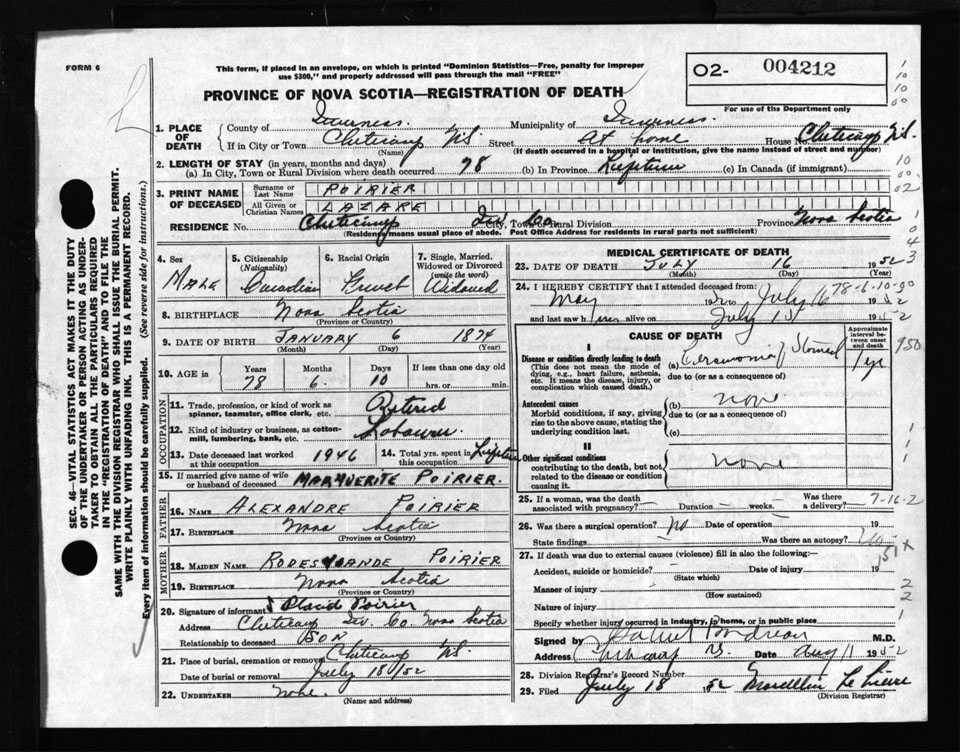 FORM 6
This form, if placed in an envelope, on which is printed "Dominion Statistics—Free, penalty for improper
use $300," and properly addressed will pass through the mail "FREE"
O2- 004212
PROVINCE OF NOVA SCOTIA—REGISTRATION OF DEATH
For use of the Department only
1. PLACE OF DEATH
County of Inverness. Municipality of Inverness.
If in City or Town Cheticamp NS Street At home House No. Cheticamp NS.
(Name) (If death occurred in a hospital or institution, give the name instead of street and number)
2. LENGTH OF STAY (in years, months and days)
(a) In City, Town or Rural Division where death occurred 78 (b) In Province Lifetime (c) In Canada (if immigrant)
3. PRINT NAME OF DECEASED
Surname or Last Name POIRIER
All Given or Christian Names LAZARE
RESIDENCE No. Cheticamp Inv. Co. City, Town or Rural Division Province Nova Scotia
(Residency means usual place of abode. Post Office Address for residents in rural parts not sufficient)
4. Sex 5. Citizenship (Nationality) 6. Racial Origin 7. Single, Married, Widowed or Divorced (write the word)
MALE Canadian French Widowed
8. BIRTHPLACE Nova Scotia
(Province or Country)
9. DATE OF BIRTH JANUARY 6 1874
(Month) (Day) (Year)
10. AGE in Years Months Days If less than one day old
78 6 10 hrs. or min.
OCCUPATION
11. Trade, profession, or kind of work as spinner, teamster, office clerk, etc. Retired
12. Kind of industry or business, as cotton-mill, lumbering, bank, etc. Labourer.
13. Date deceased last worked at this occupation 1946 14. Total yrs. spent in this occupation Lifetime
15. If married give name of wife or husband of deceased MARGUERITE POIRIER.
FATHER
16. NAME ALEXANDRE POIRIER
17. BIRTHPLACE Nova Scotia
(Province or Country)
MOTHER
18. MAIDEN NAME POIRIER
19. BIRTHPLACE Nova Scotia
(Province or Country)
20. Signature of informant Placid Poirier
Address Cheticamp Inv. Co. Nova Scotia
Relationship to deceased SON
21. Place of burial, cremation or removal Cheticamp NS.
Date of burial or removal July 18/52
22. UNDERTAKER None.
(Name and address)
MEDICAL CERTIFICATE OF DEATH
23. DATE OF DEATH JULY 16 1952
(Month) (Day) (Year)
24. I HEREBY CERTIFY that I attended deceased from: 78-6-10-90
May 19 to July 16 1952
and last saw him alive on July 15 1952
CAUSE OF DEATH
Approximate interval between onset and death
I
Disease or condition directly leading to death
(This does not mean the mode of dying, e.g., heart failure, asthenia, etc. It means the disease, injury, or complication which caused death.)
(a) Carcinoma of Stomach 1 yr
due to (or as a consequence of)
Antecedent causes
Morbid conditions, if any, giving rise to the above cause, stating the underlying condition last.
(b) none
due to (or as a consequence of)
(c)
II
Other significant conditions
contributing to the death, but not related to the disease or condition causing it.
none
25. If a woman, was the death associated with pregnancy? Duration weeks. Was there a delivery?
7-16-2
26. Was there a surgical operation? No Date of operation 19
State findings Was there an autopsy? No
27. If death was due to external causes (violence) fill in also the following:-
Accident, suicide or homicide? Date of injury 19
(State which)
Manner of injury
(How sustained)
Nature of injury
Specify whether injury occurred in industry, in home, or in public place
Signed by M.D.
Address Date Aug 1 1952
28. Division Registrar's Record Number
29. Filed July 18 1952
(Division Registrar)
SEC. 46—VITAL STATISTICS ACT MAKES IT THE DUTY
OF THE UNDERTAKER OR PERSON ACTING AS UNDER-
TAKER TO OBTAIN ALL THE PARTICULARS REQUIRED
IN THE "REGISTRATION OF DEATH" AND TO FILE THE
SAME WITH THE DIVISION REGISTRAR WHO SHALL ISSUE THE BURIAL PERMIT.
WRITE PLAINLY WITH UNFADING INK. THIS IS A PERMANENT RECORD.
Every item of information should be carefully supplied. (See reverse side for instructions.)